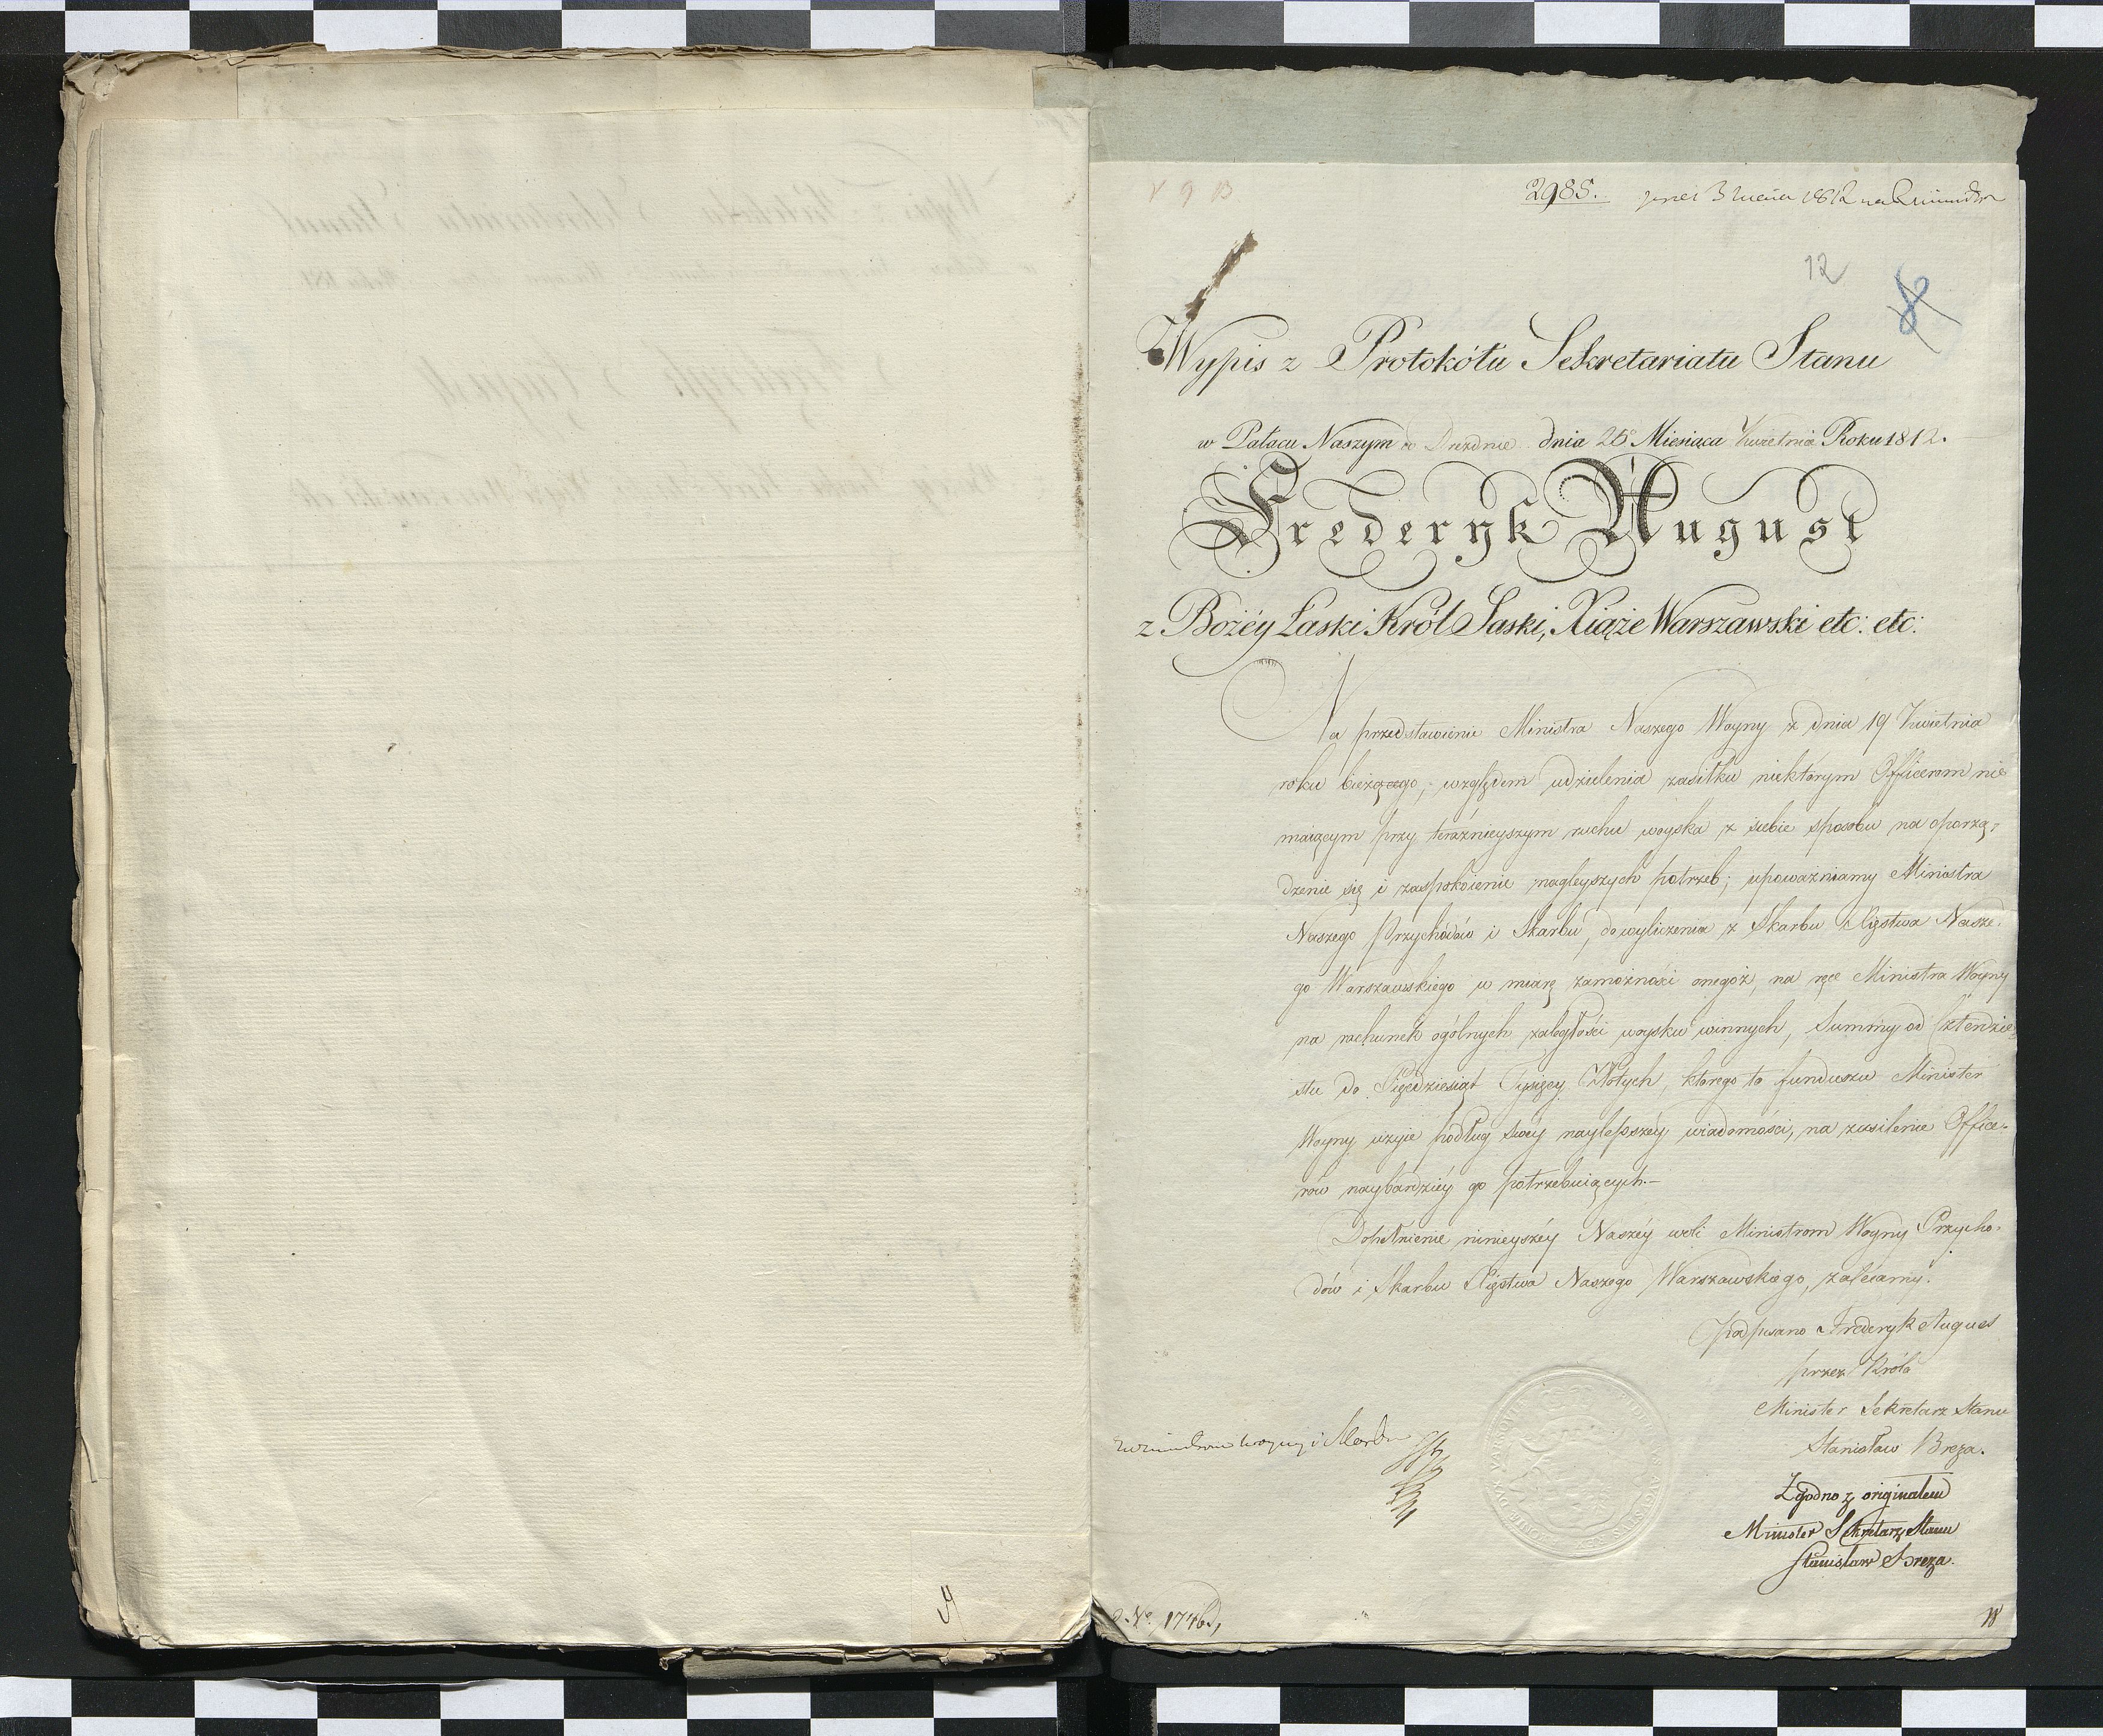 2985.
12
Wypis z Protokółu Sekretariatu Stanu
w Pałacu Naszym w Dreznie dnia 26 Miesiąca Kwietnia Roku 1812.
Frederyk August
z Bożéy Łaski Król Saski, Xiąże Warszawski etc: etc:
Na przedstawienie Ministra Naszego Woyny z dnia 19 Kwietnia
roku bieżącego, względem udzielenia zasiłku niektórym Officerom nie
maiącym przy teraźnieyszym ruchu woyska z siebie sposobu na oporzą-
dzenie się i zaspokoienie nagleyszych potrzeb; upoważniamy Ministra
Naszego Przychodów i Skarbu, do wyliczenia z Skarbu Xięstwa Nasze-
go Warszawskiego w miarę zamożności onegoż, na ręce Ministra Woyny
na rachunek ogólnych zaległości woysku winnych, Summy od Czterdzie-
stu do Pięćdziesiąt Tysięcy Złotych, którego to funduszu Minister
Woyny użyie podług swéy naylepszéy wiadomości, na zasilenie Office-
rów naybardziéy go potrzebuiących.—
Dopełnienie ninieyszéy Naszéy woli Ministrom Woyny Przycho-
dów i Skarbu Xięstwa Naszego Warszawskiego, zalecamy.
podpisano Frederyk August
przez Króla
Minister Sekretarz Stanu
Stanisław Breza.
Zgodno z originałem
Minister Sekretarz Stanu
Stanisław Breza.
No. 1746